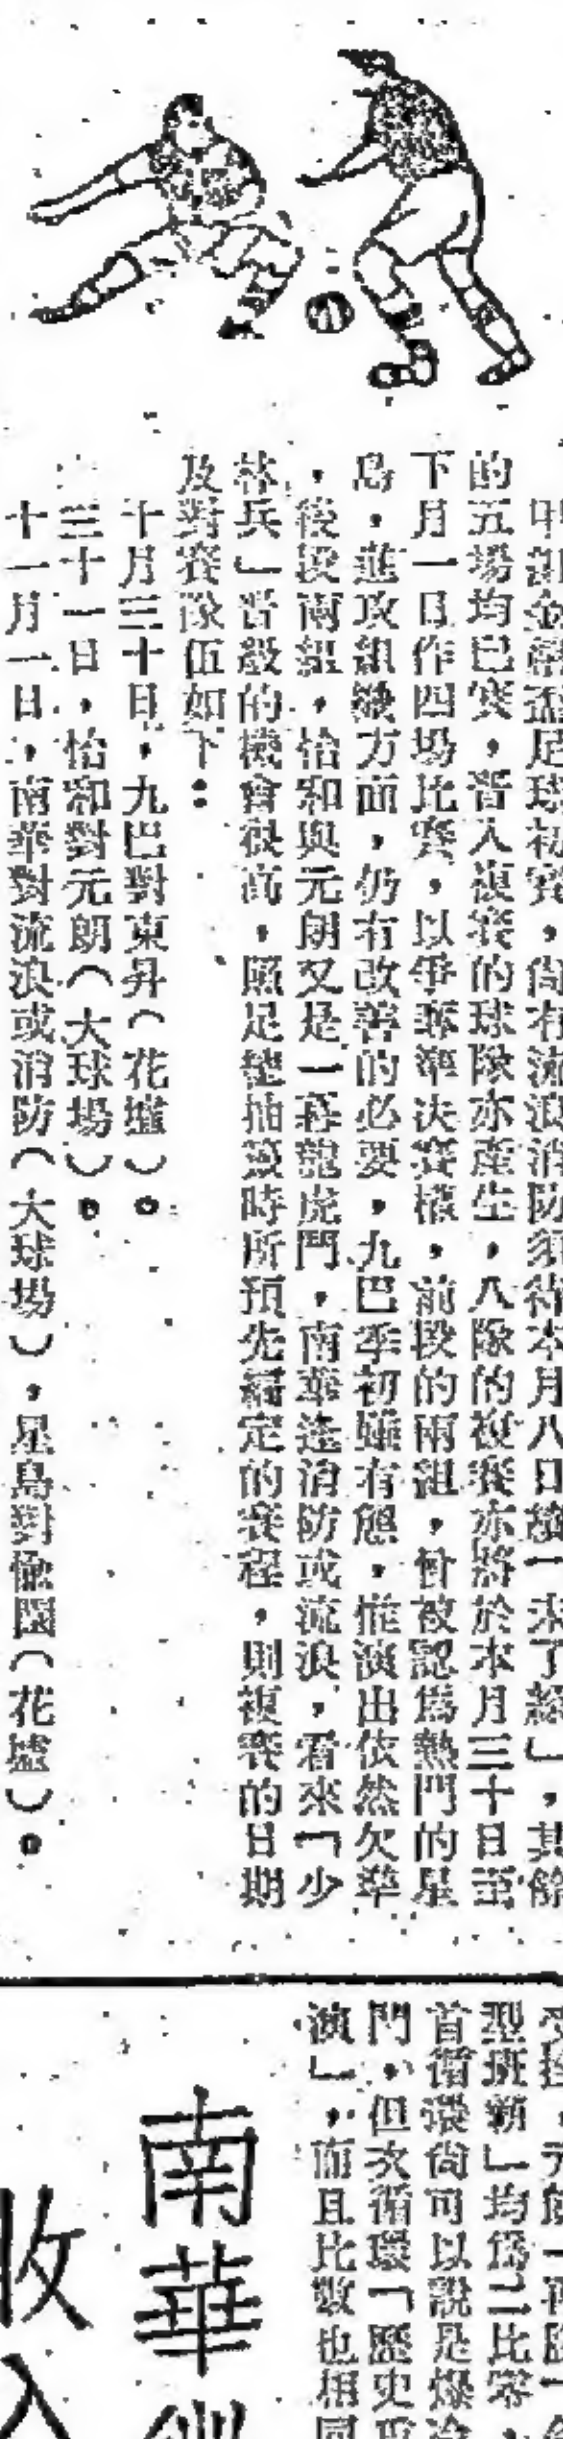 甲部金禧盃足球初賽，尙有流浪消防須待本月八日續「未了緣」，其餘
的五場均已賽，晋入複賽的球隊亦產生，八隊的複賽亦將於本月三十日至
下月一日作四塲比賽，以爭奪準决賽權，前段的兩組，曾被認爲熱門的星
島，進攻組織方面，仍有改善的必要，九巴季初雖有態，惟演出依然欠準
，後段兩組，怡和與元朗又是一塲龍虎鬥，南華逢消防或流浪，看來「少
林兵」晋級的機會很高，照足總抽簽時所預先編定的賽程，則複賽的日期
及對賽隊伍如下：
十月三十日，九巴對東昇（花墟）。
三十一日，怡和對元朗（大球塲）。
十一月一日，南華對流浪或消防（大球塲），星島對愉園（花墟）。
元朗一再
型班霸」均爲二比零，
首循環尙可以說是爆冷
門，但次循環「歷史重
演」，而且比數也相同
南華
收入